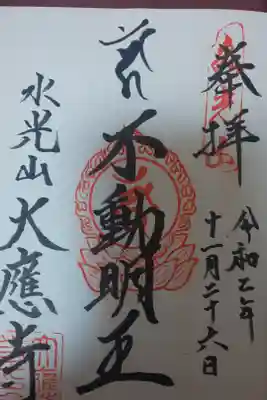 奉拝
令和乙年
十一月二十六日
不動明王
水光山
大應寺